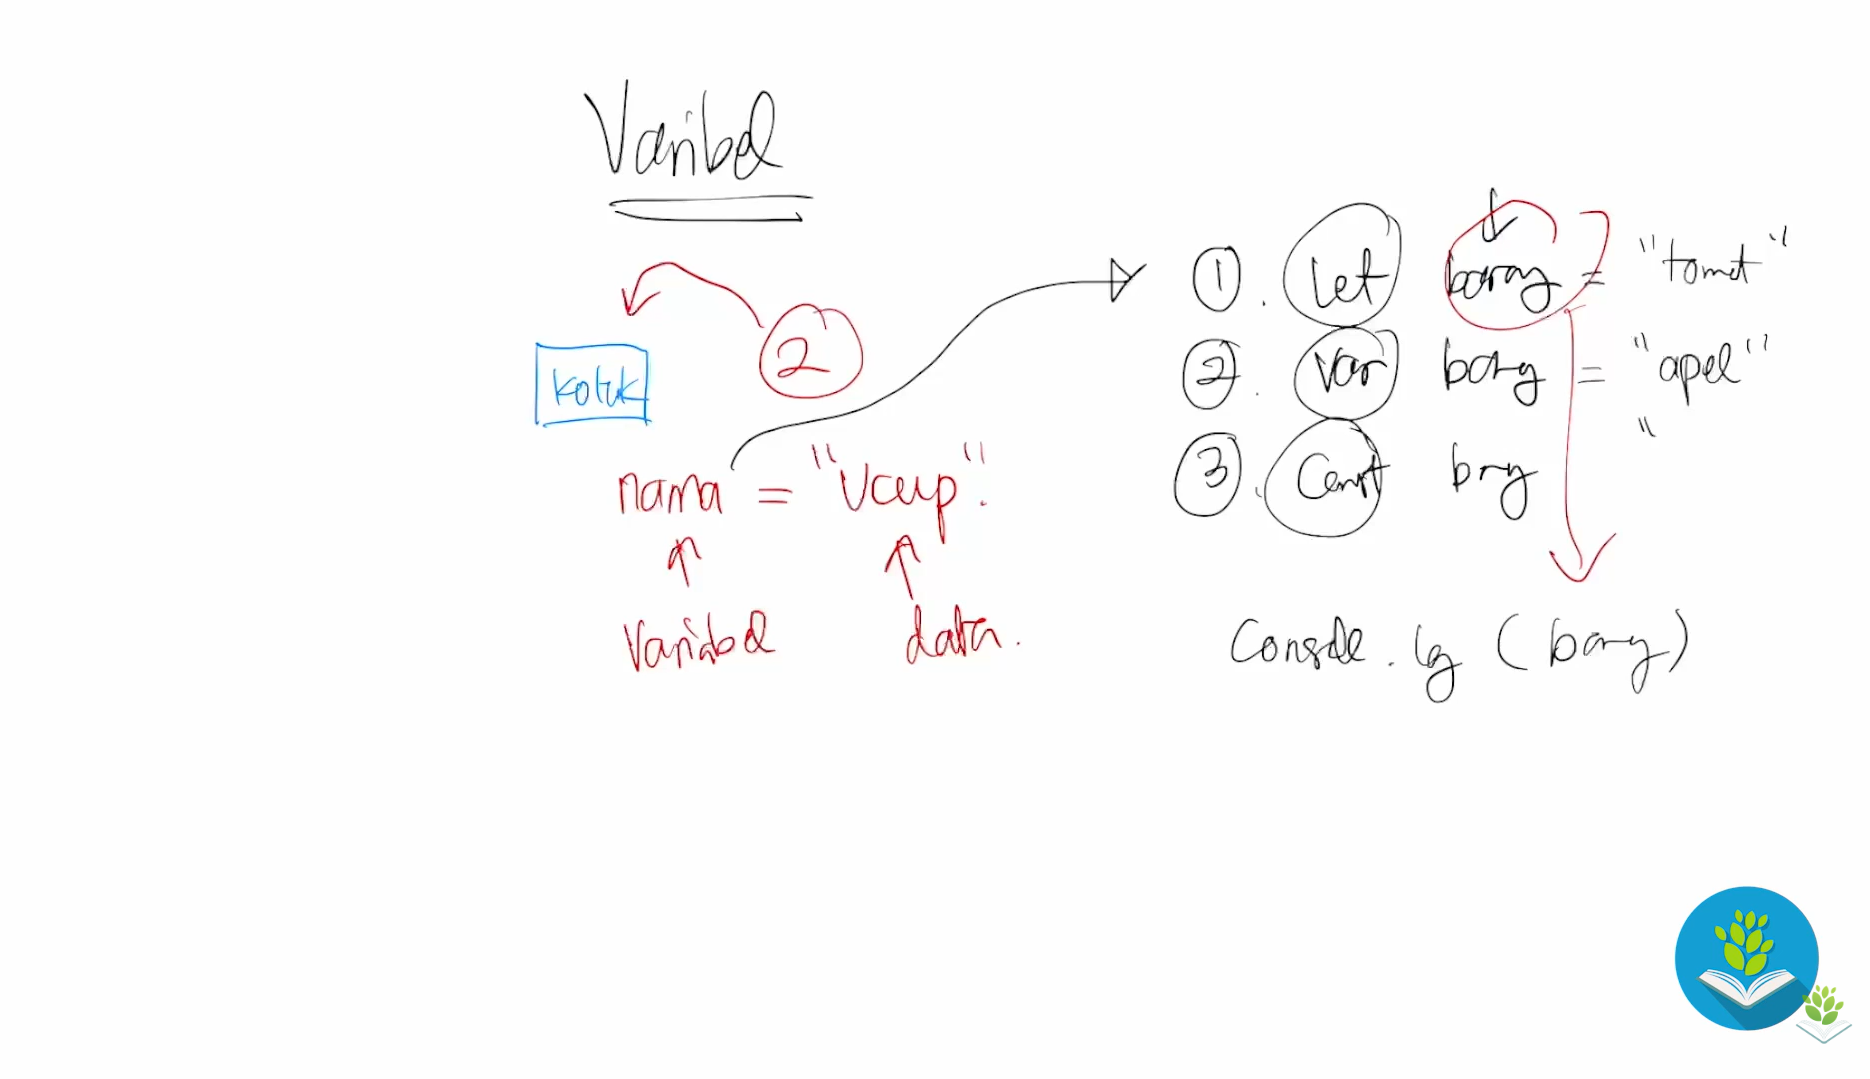 Variabel
2
kotak
nama = "Ucup".
variabel
data.
1. let barang = "tomat"
2. var barang = "apel"
"
3. Const brg
Console.log (barang)